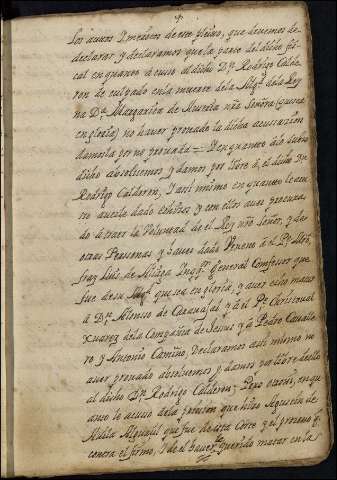 los autos Y meritos de este pleito, que devemos de
declarar y declaramos que la parte del dicho fis-
cal en quanto acuso al dicho Dn. Rodrigo Calde-
ron de culpado en la muerte de la Magd. de la Rey-
na Da. Margarita de Austria nra Señora (que sea
en gloria) no haver provado la dicha acusacion
damosla por no provada = Y en quanto a lo suso
dicho absolvemos y damos por libre á el dicho Dn.
Rodrigo Calderon, Y asi mismo en quanto le acu-
so aver dado hechizos y con ellos aver procura-
do atraer la Voluntad de el Rey nro Señor, y de
otras Personas y haver dado Veneno á el Pe. Mro.
fray Luis de Aliaga Inqqr. General Confesor que
fue de su Magd. que sea en gloria, y aver echo matar
a Dn. Alonso de Caravajal y á el Pe. Christoval
Xuarez de la Compañia de Jesus y á Pedro Cavalle-
ro y Antonio Camiño, Declaramos assi mismo no
aver provado absolvemos y damos por libre de ello
al dicho Dn. Rodrigo Calderon; Pero en quan-
to le acuso de la prision que hizo Agustin de
Avila Alguacil que fue de esta Corte y el proceso q.
contra el firmo, Y de el haverle querido matar en la